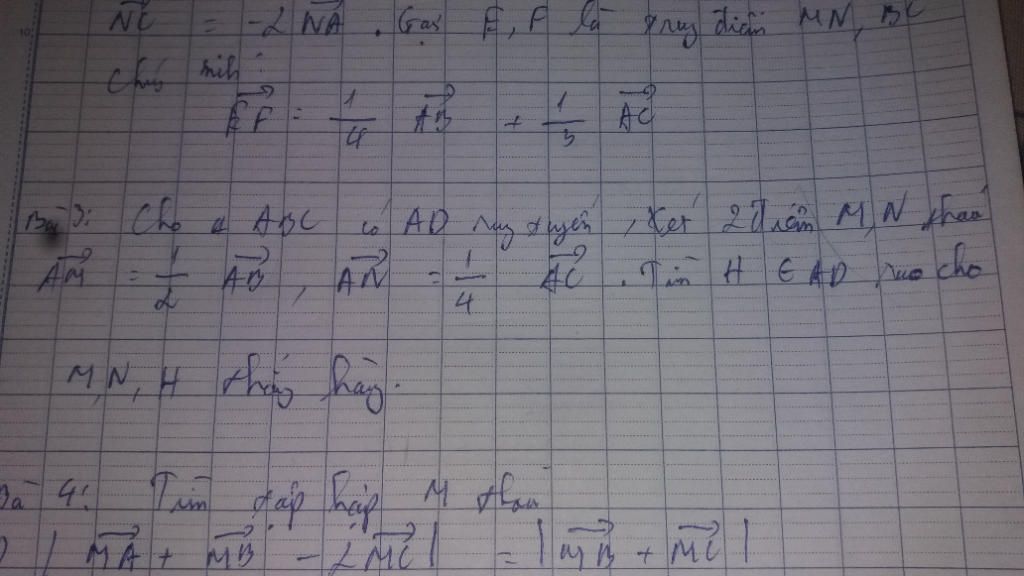 NC = -2 NA. Gọi E, F là trung điểm MN, BC
Chứng minh:
EF = 1/4 AB + 1/3 AC
Bài 3: Cho Δ ABC có AD trung tuyến, Xét 2 điểm M, N thoả
AM = 1/2 AB, AN = 1/4 AC. Tìm H ∈ AD sao cho
M, N, H thẳng hàng.
Bài 4: Tìm tập hợp M thoả
| MA + MB - 2MC | = | MB + MC |